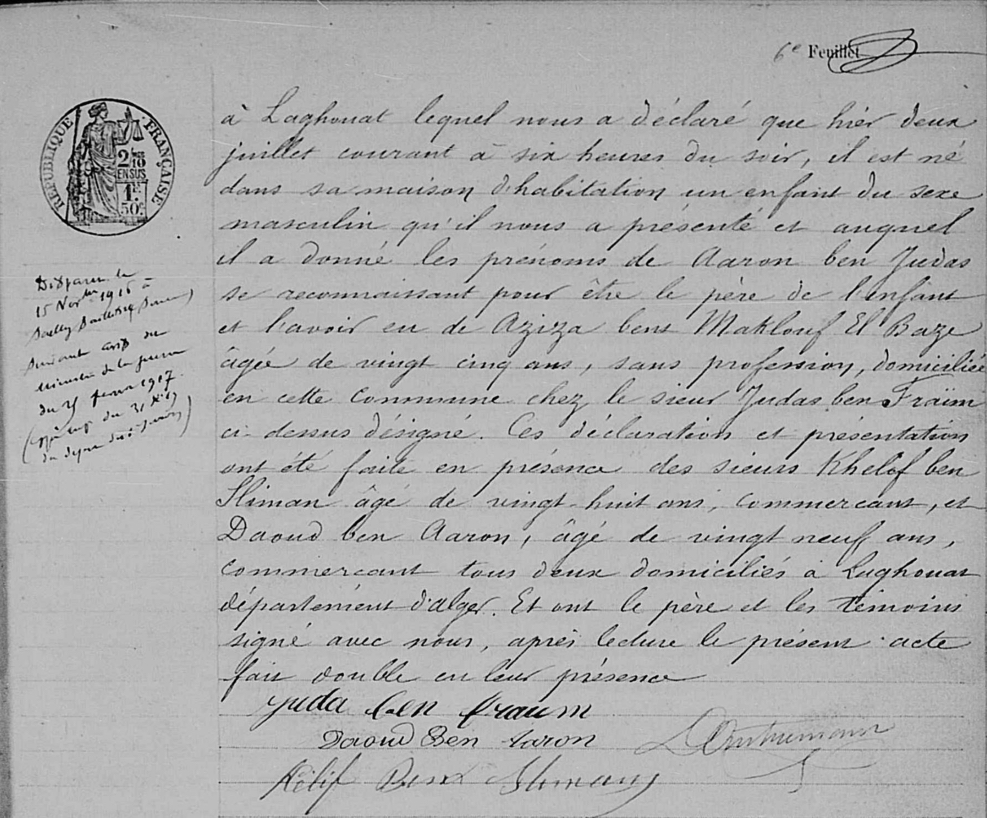 6e Feuillet
RÉPUBLIQUE FRANÇAISE
2/10
EN SUS
1F.
50c.
à Laghouat lequel nous a déclaré que hier deux
juillet courant à six heures du soir, il est né
dans sa maison d'habitation un enfant du sexe
masculin qu'il nous a présenté et auquel
il a donné les prénoms de Aaron ben Judas
se reconnaissant pour être le père de l'enfant
et l'avoir eu de Aziza bent Maklouf El Baze
âgée de vingt cinq ans, sans profession, domiciliée
en cette commune chez le sieur Judas ben Fraïm
ci-dessus désigné. Ces déclaration et présentation
ont été faite en présence des sieurs Khelof ben
Sliman âgé de vingt-huit ans, commercant, et
Daoud ben Aaron, âgé de vingt neuf ans,
commercant tous deux domiciliés à Laghouat
département d'alger. Et ont le père et les témoins
signé avec nous, après lecture le présent acte
fait double en leur présence
Disparu le
15 Novbre 1916 à
Suivant avis du
Ministre de la guerre
du 25 1917
juda ben fraum
Daoud Ben Aaron
Kélif Ben Slimany